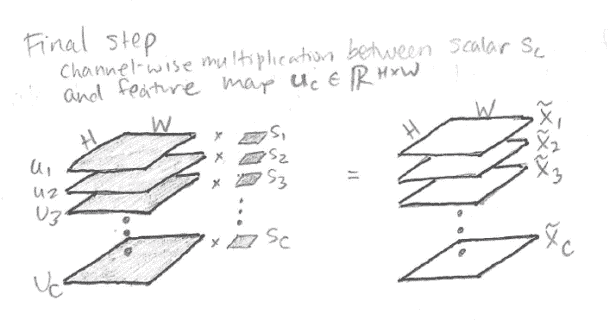 Final step
channel-wise multiplication between scalar Sc
and feature map uc ∈ ℝ H×W
H W × S1
u1 × S2
u2 × S3
U3
× Sc
Uc
=
H W X̃1
X̃2
X̃3
X̃c